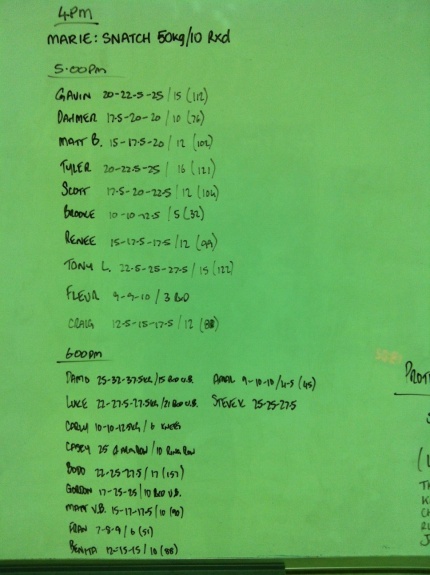 4PM
MARIE: SNATCH 50kg/10 Rxd
5.00pm
GAVIN 20-22.5-25/15 (112)
DAHMER 17.5-20-20/10 (76)
MATT B. 15-17.5-20/12 (102)
TYLER 20-22.5-25/16 (121)
SCOTT 17.5-20-22.5/12 (104)
BROOKE 10-10-12.5/5 (32)
RENEE 15-17.5-17.5/12 (99)
TONY L. 22.5-25-27.5/15 (122)
FLEUR 9-9-10/3 RxD
CRAIG 12.5-15-17.5/12 (88)
6.00pm
DAMO 25-32-37.5kg/15 RxD V.B. APRIL 9-10-10/4.5 (45)
LUKE 22-27.5-27.5kg/21 RxD V.B. STEVEK 25-25-27.5
CARLY 10-10-12.5kg/6 KNEES
CASEY 25 / 10 RING ROW
BODO 22-25-27.5/17 (157)
GORDON 17-25-25/10 RxD V.B.
MATT V.B. 15-17-17.5/10 (90)
FRAN 7-8-9/6 (51)
BENITA 12-15-15/10 (88)
PROT